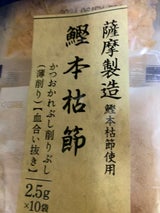 薩摩製造
鰹本枯節使用
鰹本枯節
かつおかれぶし削りぶし
(薄削り)【血合い抜き】
2.5g
×10袋